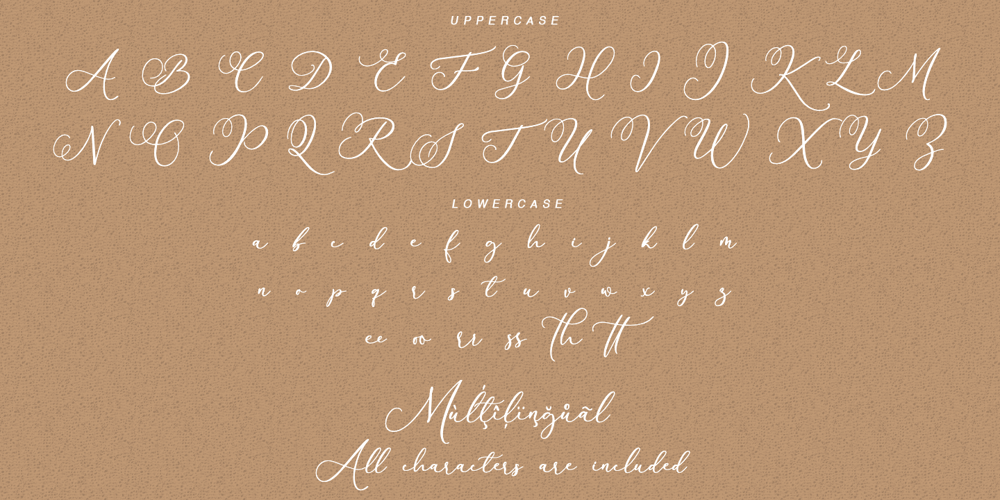 UPPERCASE
A B C D E F G H I J K L M
N O P Q R S T U V W X Y Z
LOWERCASE
a b c d e f g h i j k l m
n o p q r s t u v w x y z
ee oo rr ss th tt
Mùlţîļïņğůãl
All characters are included